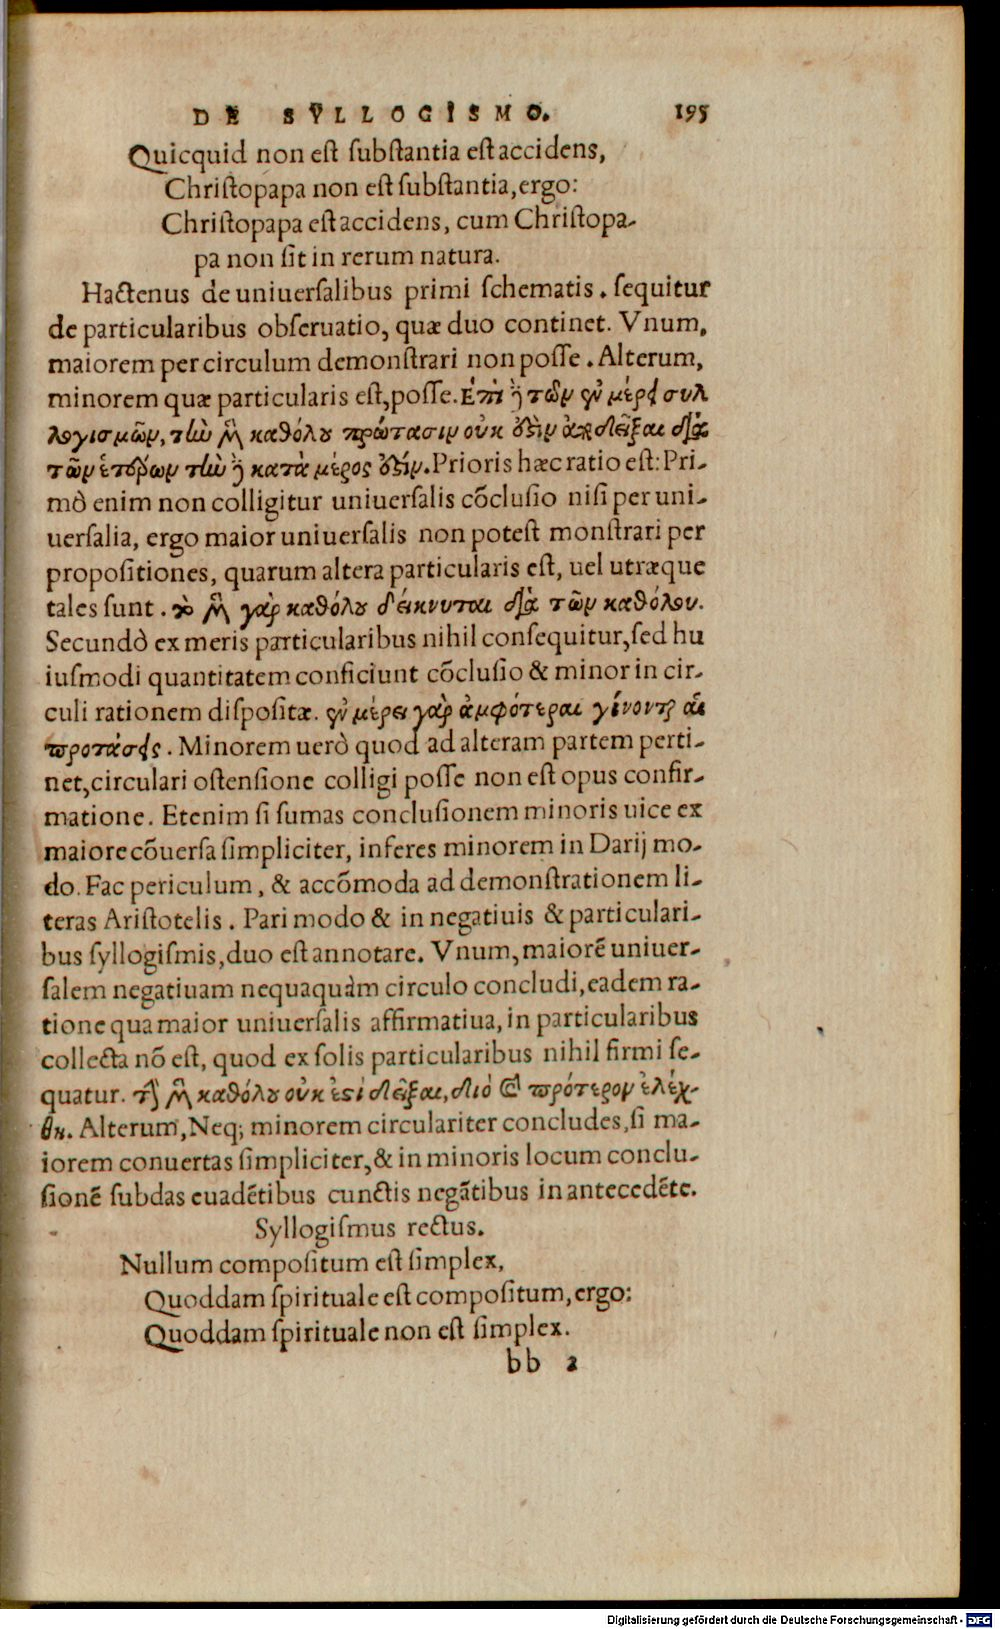 DE SYLLOGISMO. 195
Quicquid non est substantia est accidens,
Christopapa non est substantia, ergo:
Christopapa est accidens, cum Christopa-
pa non sit in rerum natura.
Hactenus de uniuersalibus primi schematis. sequitur
de particularibus obseruatio, quæ duo continet. Vnum,
maiorem per circulum demonstrari non posse. Alterum,
minorem quæ particularis est, posse. Ἐπὶ δὲ τῶν ἐν μέρει συλ
λογισμῶν, τὴν μὲν καθόλου πρότασιν οὐκ ἔστιν ἀποδεῖξαι διὰ
τῶν ἑτέρων τὴν δὲ κατὰ μέρος ἔστιν. Prioris hæc ratio est: Pri-
mò enim non colligitur uniuersalis cōclusio nisi per uni-
uersalia, ergo maior uniuersalis non potest monstrari per
propositiones, quarum altera particularis est, uel utræque
tales sunt. τὸ μὲν γὰρ καθόλου δείκνυται διὰ τῶν καθόλου.
Secundò ex meris particularibus nihil consequitur, sed hu
iusmodi quantitatem conficiunt cōclusio & minor in cir-
culi rationem dispositæ. ἐν μέρει γὰρ ἀμφότεραι γίνονται αἱ
προτάσεις. Minorem uerò quod ad alteram partem perti-
net, circulari ostensione colligi posse non est opus confir-
matione. Etenim si sumas conclusionem minoris uice ex
maiore cōuersa simpliciter, inferes minorem in Darij mo-
do. Fac periculum, & accōmoda ad demonstrationem li-
teras Aristotelis. Pari modo & in negatiuis & particulari-
bus syllogismis, duo est annotare. Vnum, maiorē uniuer-
salem negatiuam nequaquàm circulo concludi, eadem ra-
tione qua maior uniuersalis affirmatiua, in particularibus
collecta nō est, quod ex solis particularibus nihil firmi se-
quatur. τὴν μὲν καθόλου οὐκ ἔστι δεῖξαι, διὸ καὶ πρότερον ἐλέχ-
θη. Alterum, Neq; minorem circulariter concludes, si ma-
iorem conuertas simpliciter, & in minoris locum conclu-
sionē subdas euadētibus cunctis negātibus in antecedēte.
Syllogismus rectus.
Nullum compositum est simplex,
Quoddam spirituale est compositum, ergo:
Quoddam spirituale non est simplex.
bb 2
Digitalisierung gefördert durch die Deutsche Forschungsgemeinschaft - DFG